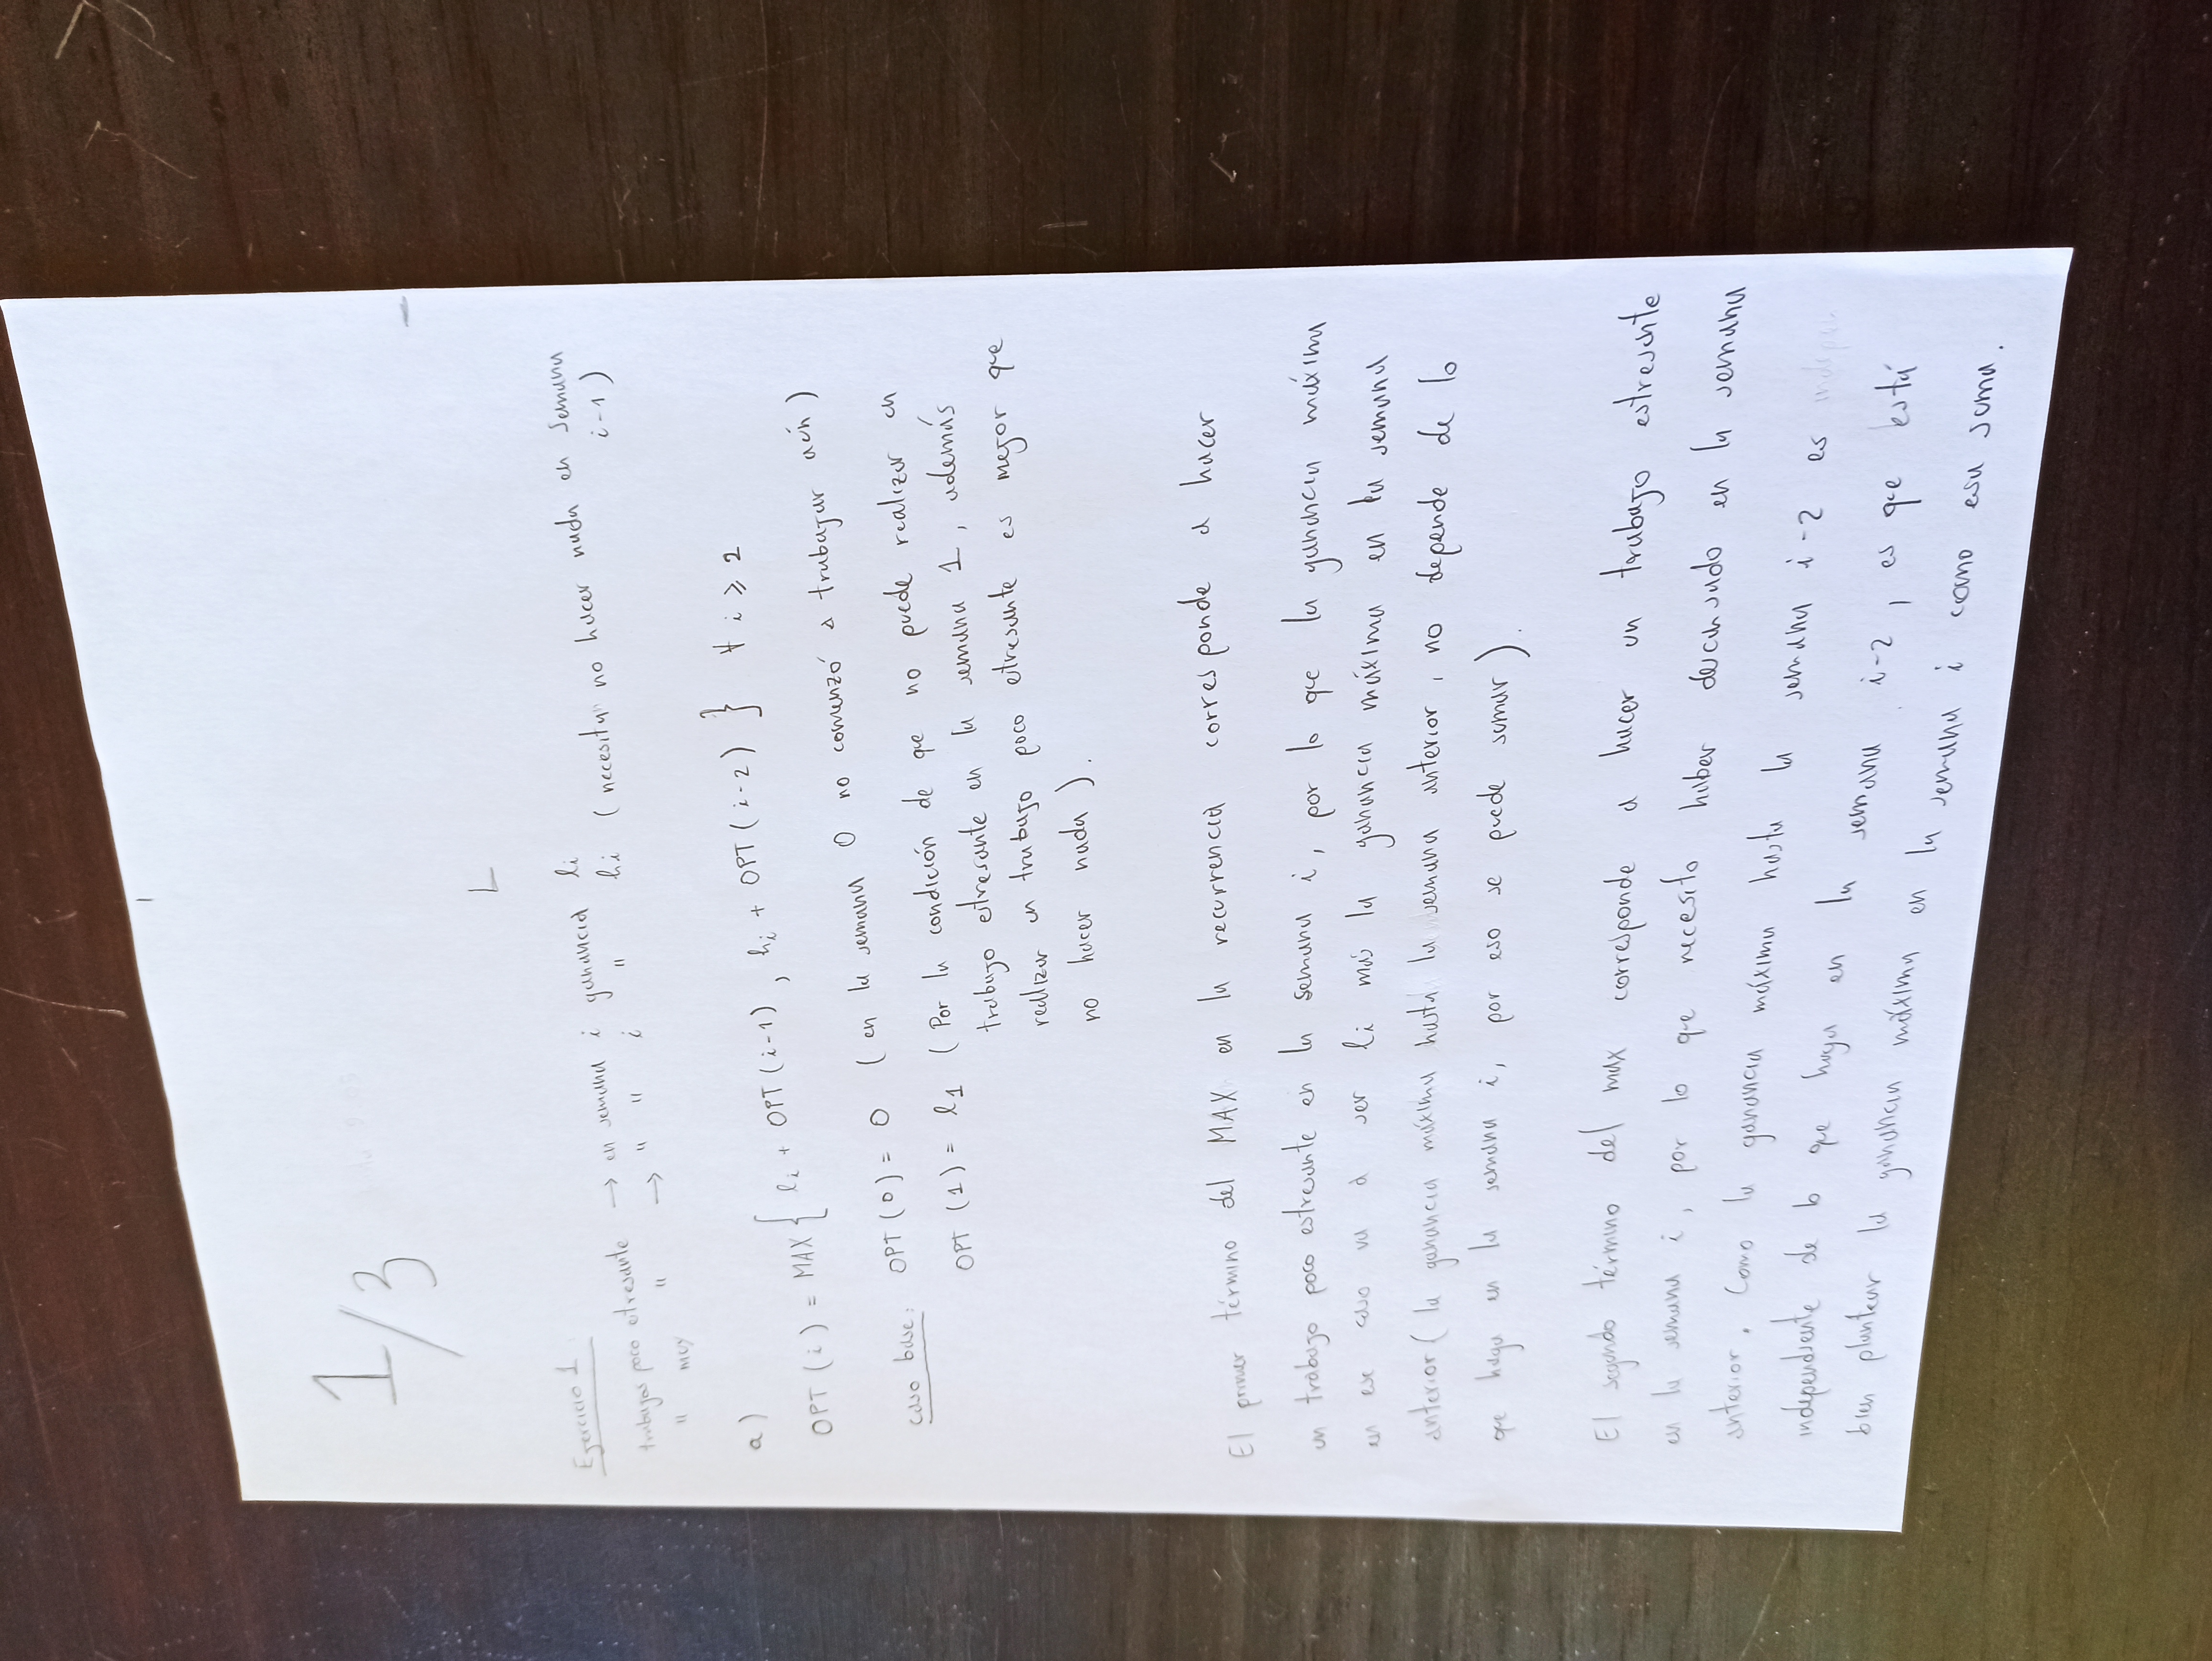 1/3
Ejercicio 1
trabajos poco estresante → en semana i ganancia li
" muy " → " " i " hi (necesita no hacer nada en semana i-1)
a)
OPT(i) = MAX { li + OPT(i-1), hi + OPT(i-2) } ∀ i ≥ 2
caso base: OPT(0) = 0 (en la semana 0 no comenzó a trabajar aún)
OPT(1) = l1 (Por la condición de que no puede realizar un
trabajo estresante en la semana 1, además
realizar un trabajo poco estresante es mejor que
no hacer nada).
El primer término del MAX en la recurrencia corresponde a hacer
un trabajo poco estresante en la semana i, por lo que la ganancia máxim
en ese caso va a ser li más la ganancia máxima en la semana
anterior (la ganancia máxima hasta la semana anterior, no depende de lo
que haga en la semana i, por eso se puede sumar).
El segundo término del max corresponde a hacer un trabajo estresente
en la semana i, por lo que necesito haber descansado en la semana
anterior. Como la ganancia máxima hasta la semana i-2 es
independiente de lo que haga en la semana i-2, es que está
bien plantear la ganancia máxima en la semana i como esa suma.